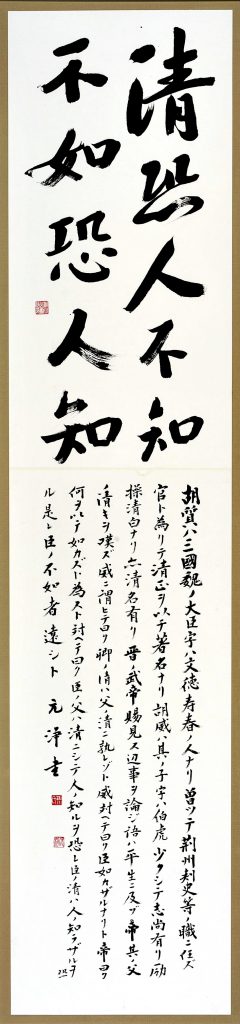 清恐人不知
不如恐人知
胡質ハ三國魏ノ大臣字ハ文徳寿春ノ人ナリ曽ツテ荆州刺史等ノ職ニ任ズ
官ト為リテ清正ヲ以テ著名ナリ胡威ハ其ノ子字ハ伯虎少クシテ志尚有リ励
操清白ナリ亦清名有リ晋ノ武帝賜見ス辺事ヲ論ジ語ハ平生ニ及ブ帝其ノ父
ノ清キヲ嘆ズ威ニ謂ヒテ曰ク卿ノ清ハ父ノ清ニ孰レゾト威対ヘテ曰ク臣如カザルナリト帝曰ク
何ヲ以テ如カズト為スト対ヘテ曰ク臣ノ父ハ清ニシテ人ノ知ルヲ恐レ臣ノ清ハ人ノ知ラザルヲ恐
ル是レ臣ノ不如者遠シト 元浄書